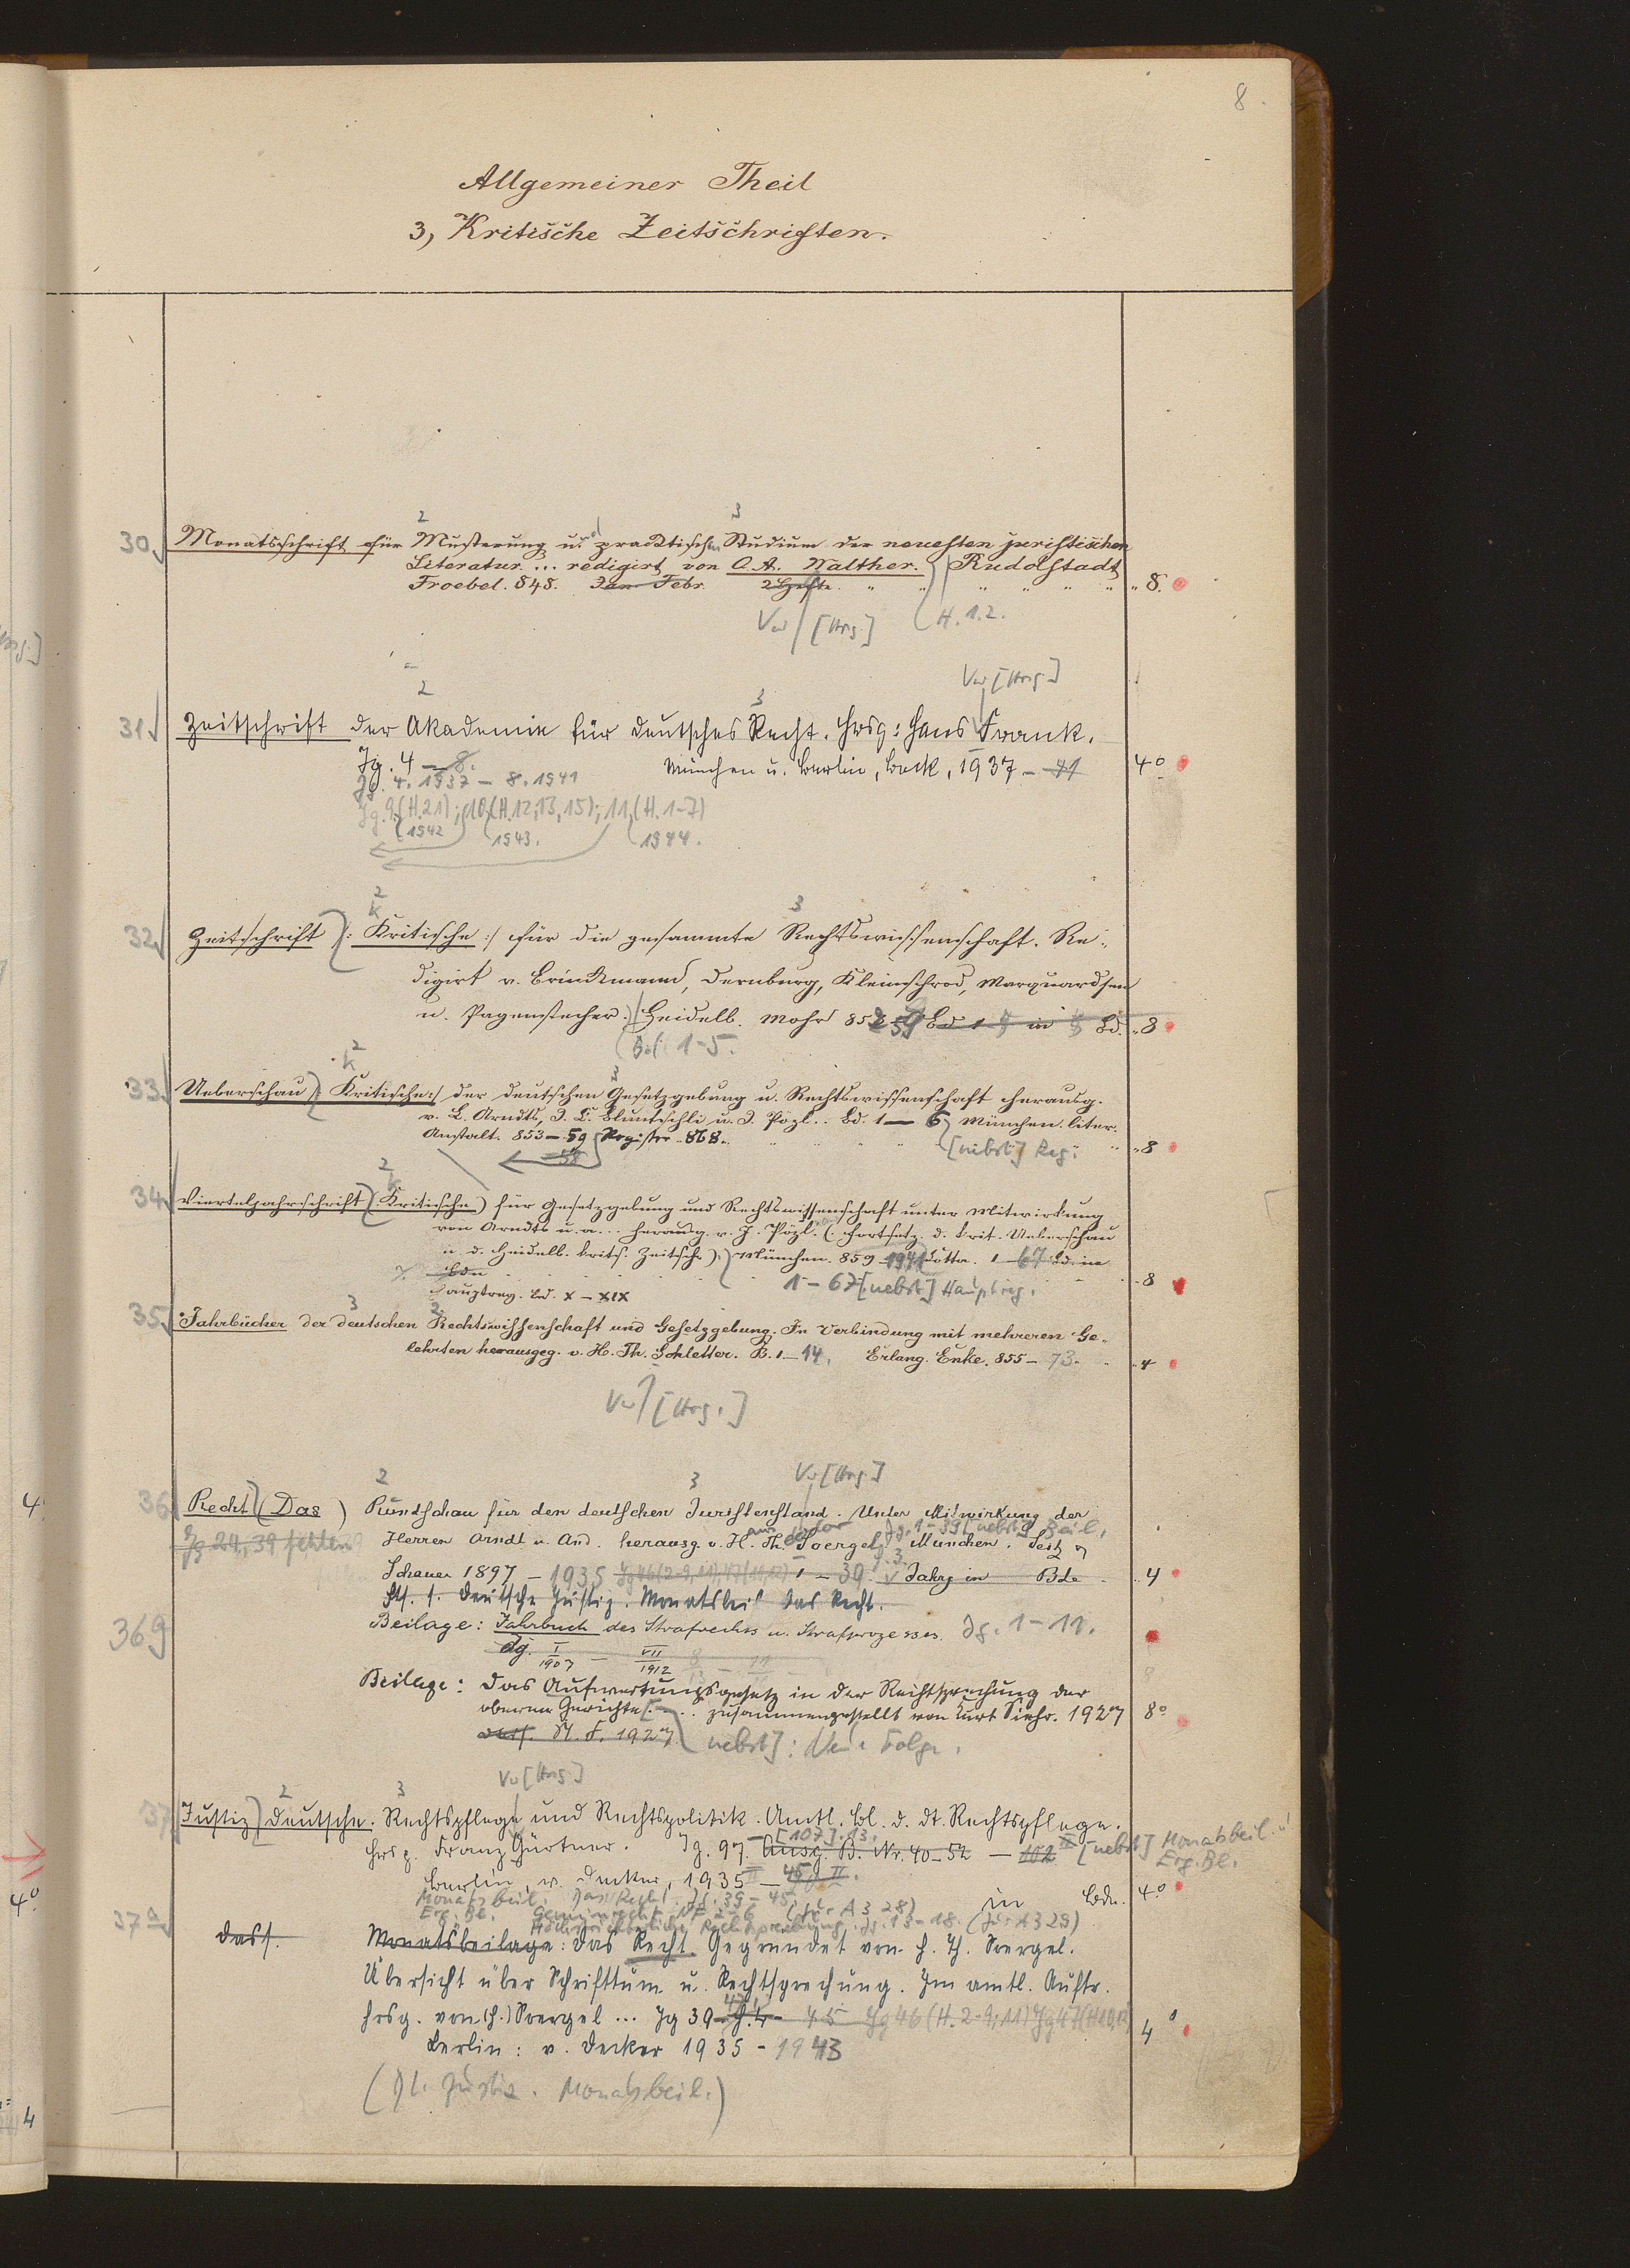 8.
Allgemeiner Theil
3, Kritische Zeitschriften.
2 3
30 Monatsschrift für Musterung und practischen Studium der neuesten juristischen
Literatur ... redigirt von O. A. Walther. Rudolstadt
Froebel. 848. Jan Febr. 2 Hefte " " " " " " " 8.
Vw [Hrg.] (H. 1.2.
Vw [Hrsg.]
2 3
31 Zeitschrift der Akademie für Deutsches Recht. Hrsg: Hans Frank.
Jg. 4 — 8. München u. Berlin, Beck, 1937 - 41 4°
Jg. 4. 1937 - 8. 1941
Jg. 9 (H. 21); 10 (H. 12, 13, 15); 11, (H. 1-7)
(1942 (1943. (1944.
2 3
k
32 Zeitschrift |: Kritische :| für die gesammte Rechtswissenschaft. Re-
digirt v. Brinckmann, Dernburg, Kleinschrod, Marquardsen
u. Pagenstecher. Heidelb. Mohr 852 59 Bd 1 5 in 5 Bd. 8
(Bd. 1-5.
2
k 3
33 Ueberschau |: Kritische :| der deutschen Gesetzgebung u. Rechtswissenschaft herausg.
v. L. Arndts, J. C. Bluntschli u. J. Pözl .. Bd. 1 — 6 München. liter.
Anstalt. 853 — 59 Register 868. [nebst] Reg. 8
58
2
k
34 Vierteljahrschrift (Kritische) für Gesetzgebung und Rechtswissenschaft unter Mitwirkung
von Arndts u. a... herausg. v. J. Pözl. (. Fortsetz. d. krit. Ueberschau
u. d. Heidelb. krit. Zeitschr.) München. 859 - 1941 Cotta. 1 - 67 Bd. in
Bdn 8
Hauptreg. Bd. X - XIX 1 - 67 [nebst] Hauptreg.
3 2
35 Jahrbücher der deutschen Rechtswissenschaft und Gesetzgebung. In Verbindung mit mehreren Ge-
lehrten herausgeg. v. H. Th. Schletter. B. 1 - 14. Erlang. Enke. 855 - 73. 4
Vw [Hrg.]
2 3 Vw [Hrg.]
36 Recht (Das) Rundschau für den deutschen Juristenstand. Unter Mitwirkung der
Jg. 1 - 39 [nebst] Beil.
Jg 24, 39 fehlen Herren Arndt u. And. herausg. v. H. Th. Soergel. München. Seitz &
Schauer 1897 - 1935 Jg 46 (2-9, 11), 47 (11, 12) 1 - 39. Jahrg in Bde 4
Forts. s. Deutsche Justiz. Monatsbeil Das Recht.
36 g Beilage: Jahrbuch des Strafrechts u. Strafprozesses. Jg. 1 - 11.
Jg. I 1907 — VII 1912 8 - 11
Beilage: Das Aufwertungsgesetz in der Rechtsprechung der
oberen Gerichte ... zusammengestellt von Kurt Siehr. 1927 8°
dass. N. F. 1927 nebst]: Neue Folge.
Vw [Hrg.]
2 3
37 Justiz Deutsche. Rechtspflege und Rechtspolitik. Amtl. Bl. d. dt. Rechtspflege.
Hrsg. Franz Gürtner. Jg. 97. [107], 13. Ausg. B. Nr. 40 - 52 — 102 II [nebst] Monatsbeil. u.
Erg. Bl.
Berlin, v. Decker, 1935 II — 45 II. in Bdn. 4°
Monatsbeil. Das Recht. Jg. 39 - 45
Erg. Bl. Gemeinrecht NF 2 - 6 (Jur A 3 28)
Höchstrichterliche Rechtsprechung. Jg. 13 - 18. (Jur A 3 29)
37a dass. Monatsbeilage: Das Recht. Gegründet von H. Th. Soergel.
Übersicht über Schrifttum u. Rechtsprechung. Im amtl. Auftr.
hrsg. von (H.) Soergel ... Jg 39 - 45 Jg 46 (H. 2-9, 11) Jg 47 (H 10, 12) 4°
Berlin: v. Decker 1935 - 1943
(Dt. Justiz. Monatsbeil.)